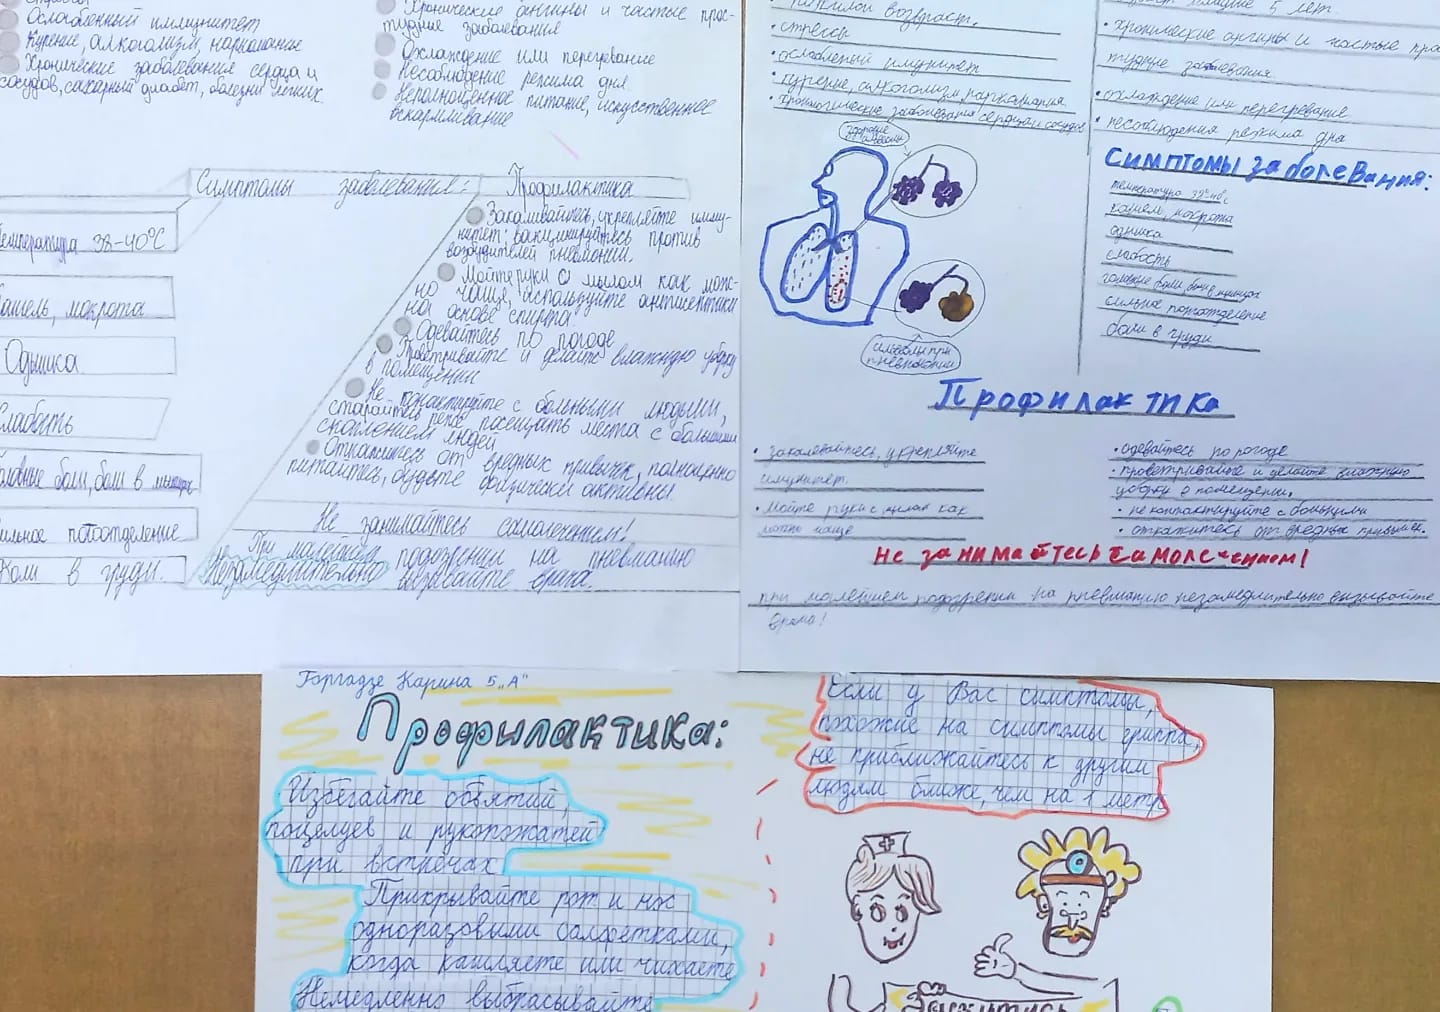 Ослабленный иммунитет
Курение, алкоголизм, наркомания
Хронические заболевания сердца и
сосудов, сахарный диабет, болезни легких.
Хронические ангины и частые прос-
тудние заболевания
Охлаждение или перегревание
Несоблюдение режима дня.
Неполноценное питание, искусственное
вскармливание
Симптомы заболевания:
температура 38-40°С
Кашель, мокрота
Одышка
Слабость
головные боли, боли в мышцах
сильное потоотделение
Боли в груди.
Профилактика
Закаливайтесь, укрепляйте имму-
нитет: вакцинируйтесь против
возбудителей пневмонии.
Мойте руки с мылом как мож-
но чаще, используйте антисептики
на основе спирта.
Одевайтесь по погоде
Проветривайте и делайте влажную уборку
в помещении
Не контактируйте с больными людьми,
старайтесь реже посещать места с большим
скоплением людей
Откажитесь от вредных привычек, полноценно
питайтесь, будьте физически активны.
Не занимайтесь самолечением!
При малейшем подозрении на пневманию
Незамедлительно вызывайте врача.
пожилой возраст.
• стрессы
• ослабленый имунитет
• курение, алкоголизм, наркомания
• хронические заболевания сердца и сосудов
5 лет
• хронические ангины и частые прос
тудние заболевания
• охлаждение или перегревание
• несоблюдения режима дна
здоровые
альвеолы
альвеолы при
пневмонии
Симптомы заболевания:
температура
кашель, мокрота
одышка
слабость
головные боли боли в мышцах
сильное потоотделение
боли в груди
Профилактика
• закалевайтесь, укрепляйте
имунитет.
• Мойте руки с мылом как
можно чаще
• одевайтесь по погоде
• проветривайте и делайте влажную
уборку в помещении.
• не контактируйте с больными
• откажитесь от вредных привычек.
не занимайтесь самолечением!
при малейшем подозрении на пневмацию незамедлительно вызывайте
врача!
Горгадзе Карина 5 „А"
Профилактика:
Избегайте объятий,
поцелуев и рукопожатей
при встречах
Прикрывайте рот и нос
одноразовыми салфетками,
когда кашляете или чихаете
Немедленно выбрасывайте
Если у Вас симптомы,
похожие на симптомы гриппа,
не приближайтесь к другим
людям ближе, чем на 1 метр